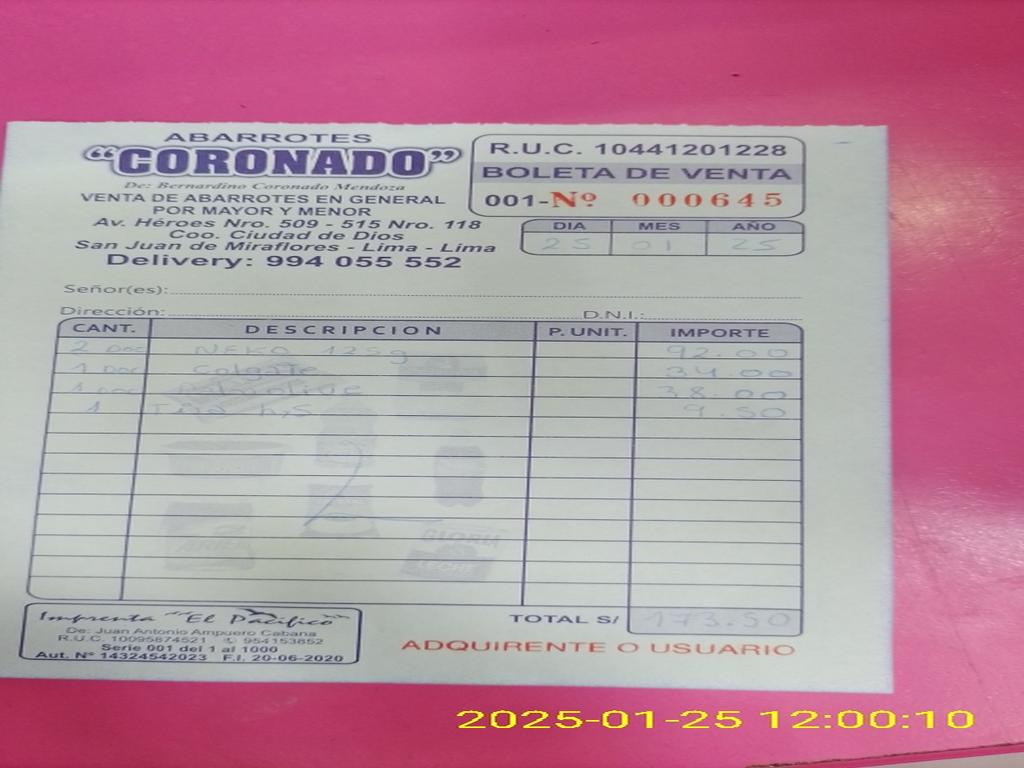 ABARROTES
"CORONADO"
De: Bernardino Coronado Mendoza
VENTA DE ABARROTES EN GENERAL
POR MAYOR Y MENOR
Av. Héroes Nro. 509 - 515 Nro. 118
Coo. Ciudad de Dios
San Juan de Miraflores - Lima - Lima
Delivery: 994 055 552
R.U.C. 10441201228
BOLETA DE VENTA
001-Nº 000645
DIA MES AÑO
25 01 25
Señor(es):
Dirección: D.N.I.:
CANT. DESCRIPCION P. UNIT. IMPORTE
2 Doc NEKO 125g 92.00
1 Doc Colgate 34.00
1 Doc Palmolive 38.00
1 9.50
GLORIA
LECHE
TOTAL S/ 173.50
ADQUIRENTE O USUARIO
Imprenta "El Pacífico"
De: Juan Antonio Ampuero Cabana
R.U.C. 10095874521 954153852
Serie 001 del 1 al 1000
Aut. Nº 14324542023 F.I. 20-06-2020
2025-01-25 12:00:10